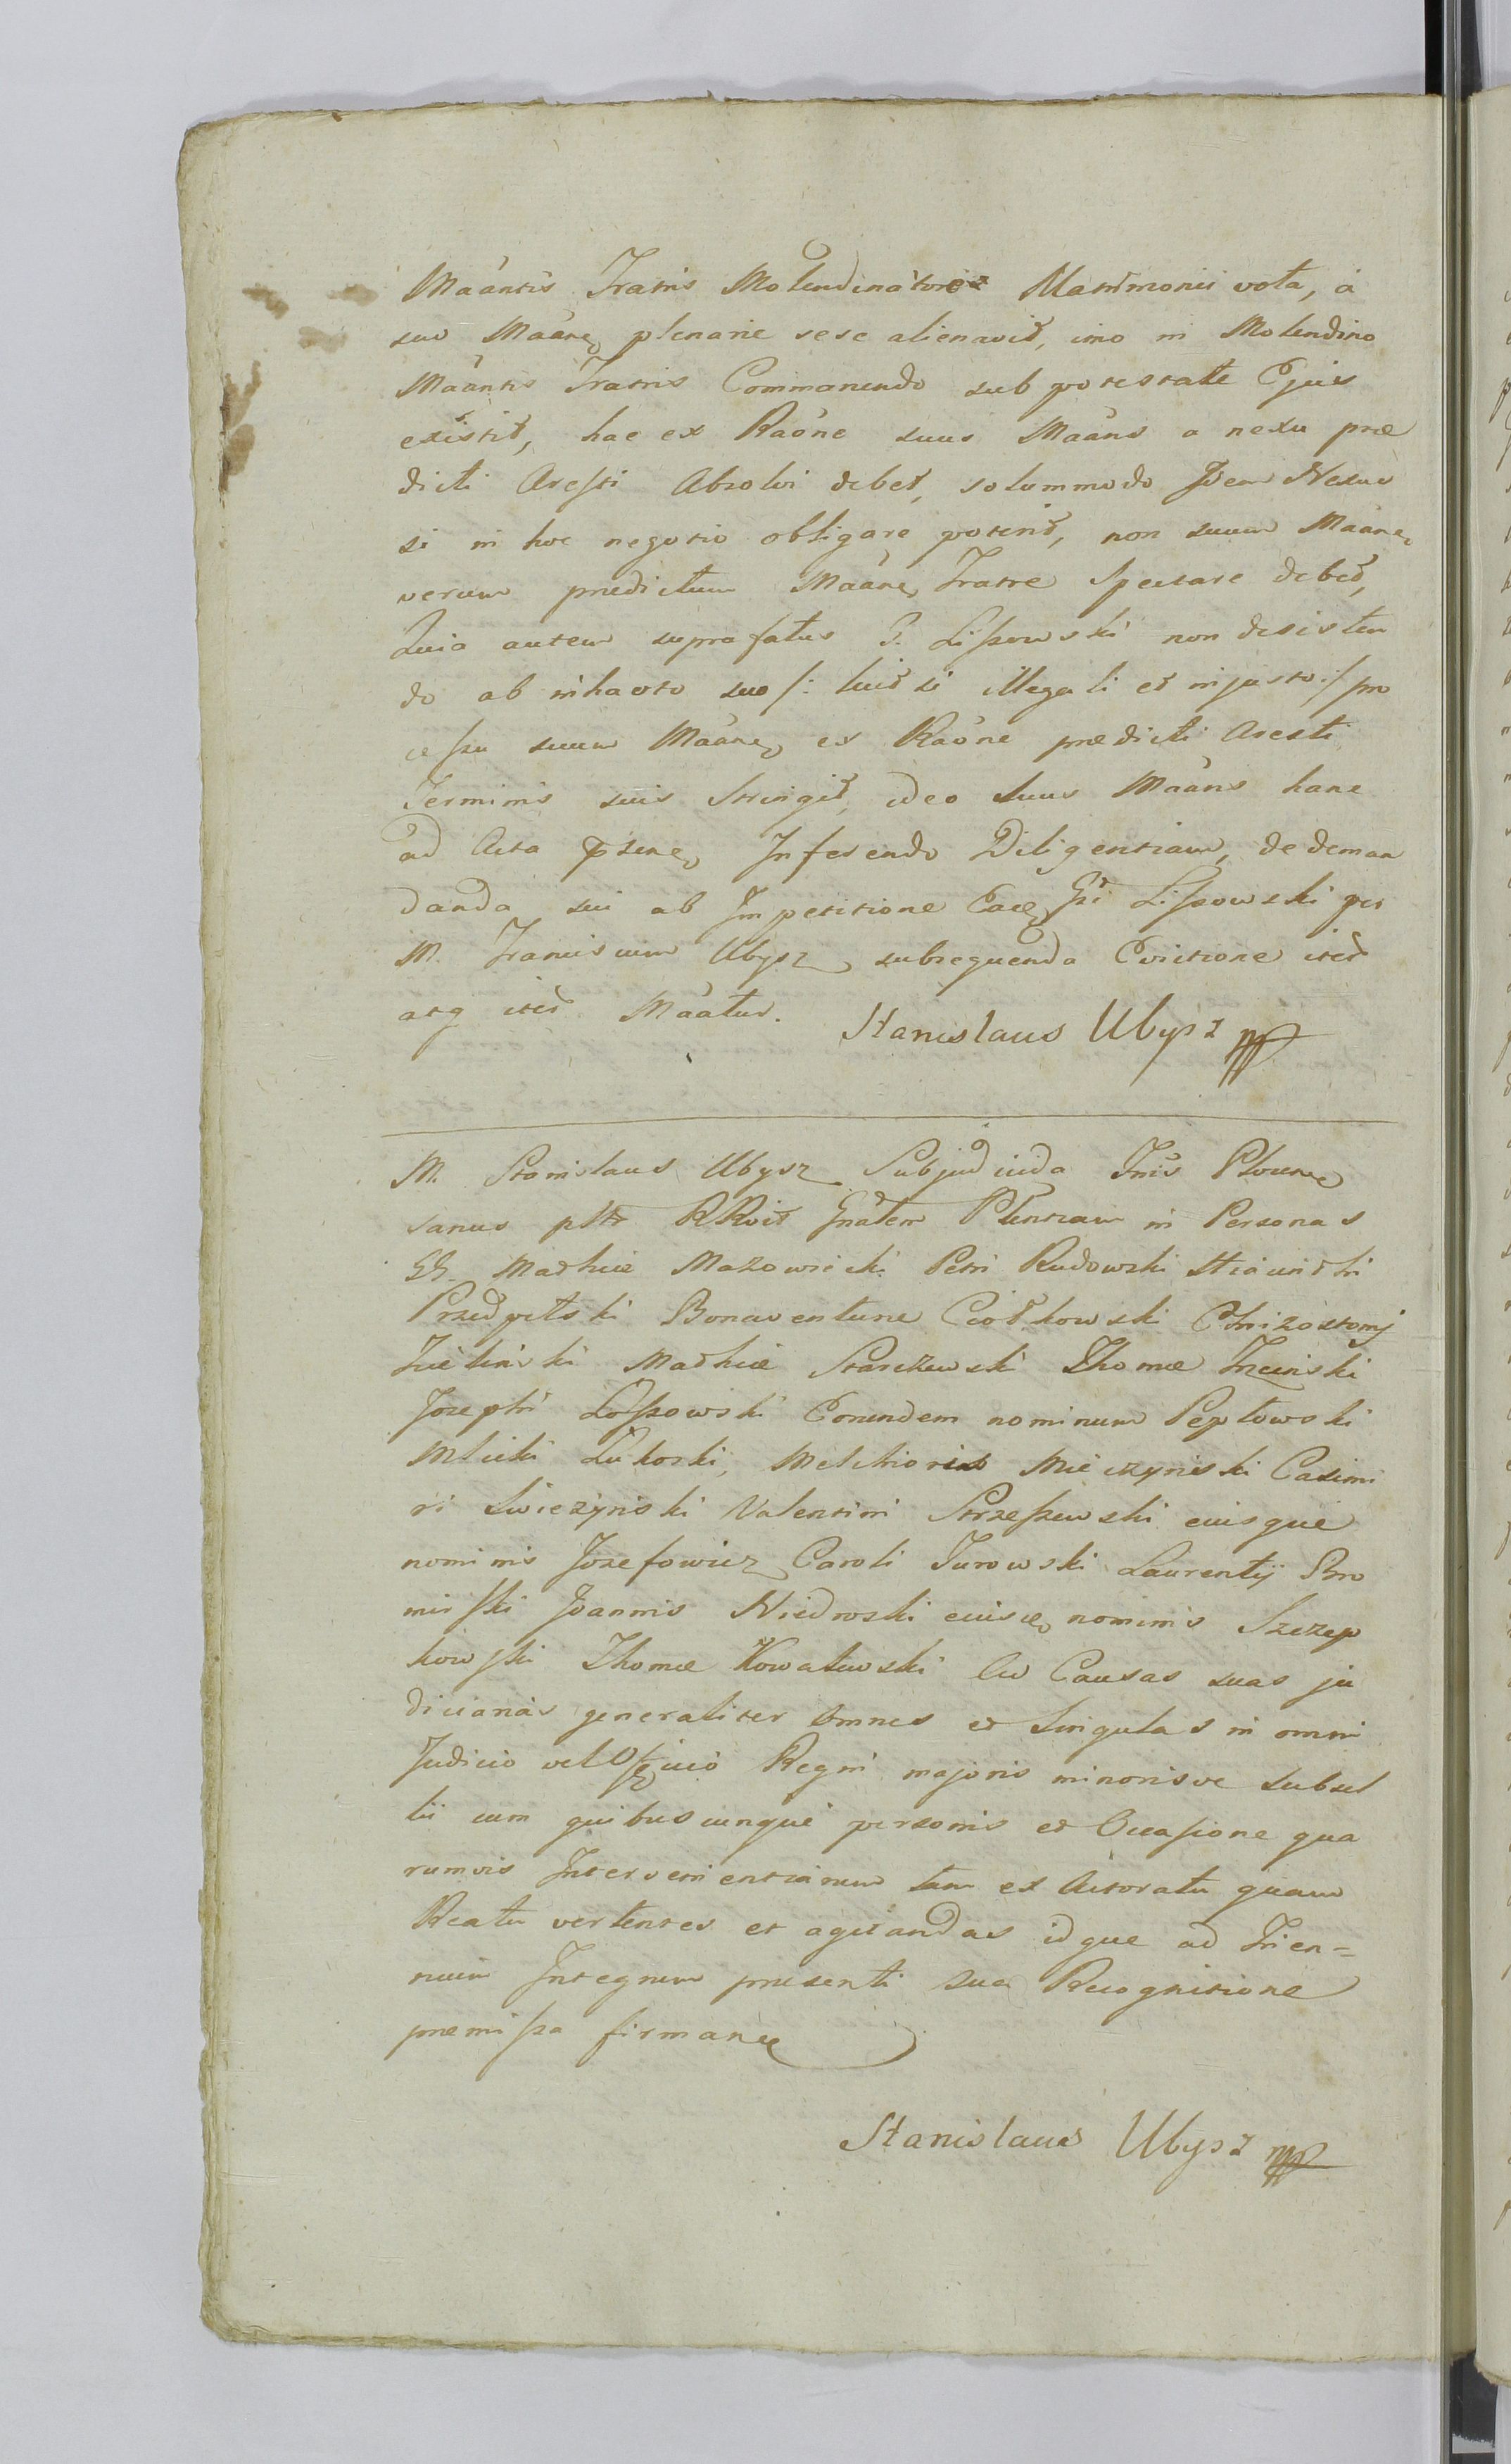 Maántis Fratris Molendinatoris Matrimonii vota, á
suo Maáne plenarie sese alienavit, imo in Molendino
Maántis Fratris Commanendo sub potestate Ejus
existit, hac ex Raóne suus Maáns a nexu præ
dicti Aresti Absolvi debet, solummodo Idem Nexus
si in hoc negotio obligare poterit, non suum Maáne
verum predictum Maáne Fratre Spectare debet,
Quia autem suprafatus G. Lissowski non desisten
do ab inhaesto suo /: licet si illegali et injusto :/ pro
cessu suum Maáne ex Raóne prædicti Aresti
Terminis suis stringit, ideo suus Maáns hanc
ad Acta psene Inferendo Diligentiam, de deman
danda sui ab Impetitione Gsi Lissowski per
M. Franciscum Ubysz subsequenda Evictione iter
atq iter Maátur. Stanislaus Ubysz mp
M. Stanislaus Ubysz Subjudicida Tris Plocen
sanus pltr RRvit Gnalem Plentiam in Personas
GG. Mathiæ Mazowiecki Petri Rudowski Hiacinthi
Przedpełski Bonaventuræ Ciołkowski Chrizostomj
Zieliński Mathiæ Starczewski Thomæ Trzciński
Josephi Lossowski Eorundem nominum Pepłowski
Mlicki Sikorski, Melchioris Mieczyński Casimi
ri Swiezyński Valentini Strzeszewski eiusque
nominis Jozefowicz Caroli Turowski Laurentij Bro
mirski Joannis Niedroski eiusqe nominis Szczep
kowski Thomæ Kowalewski ad Causas suas ju
diciarias generaliter omnes et singulas in omni
Judicio vel Officio Regni majoris minorisve subsel
lii cum quibuscunque personis et Occasione qua
rumvis Intervenientiarum tam ex Actoratu quam
Reatu vertentes et agitandas idque ad Trien=
nium Integrum presenti sua Recognitione
premissa firmane
Stanislaus Ubysz mp